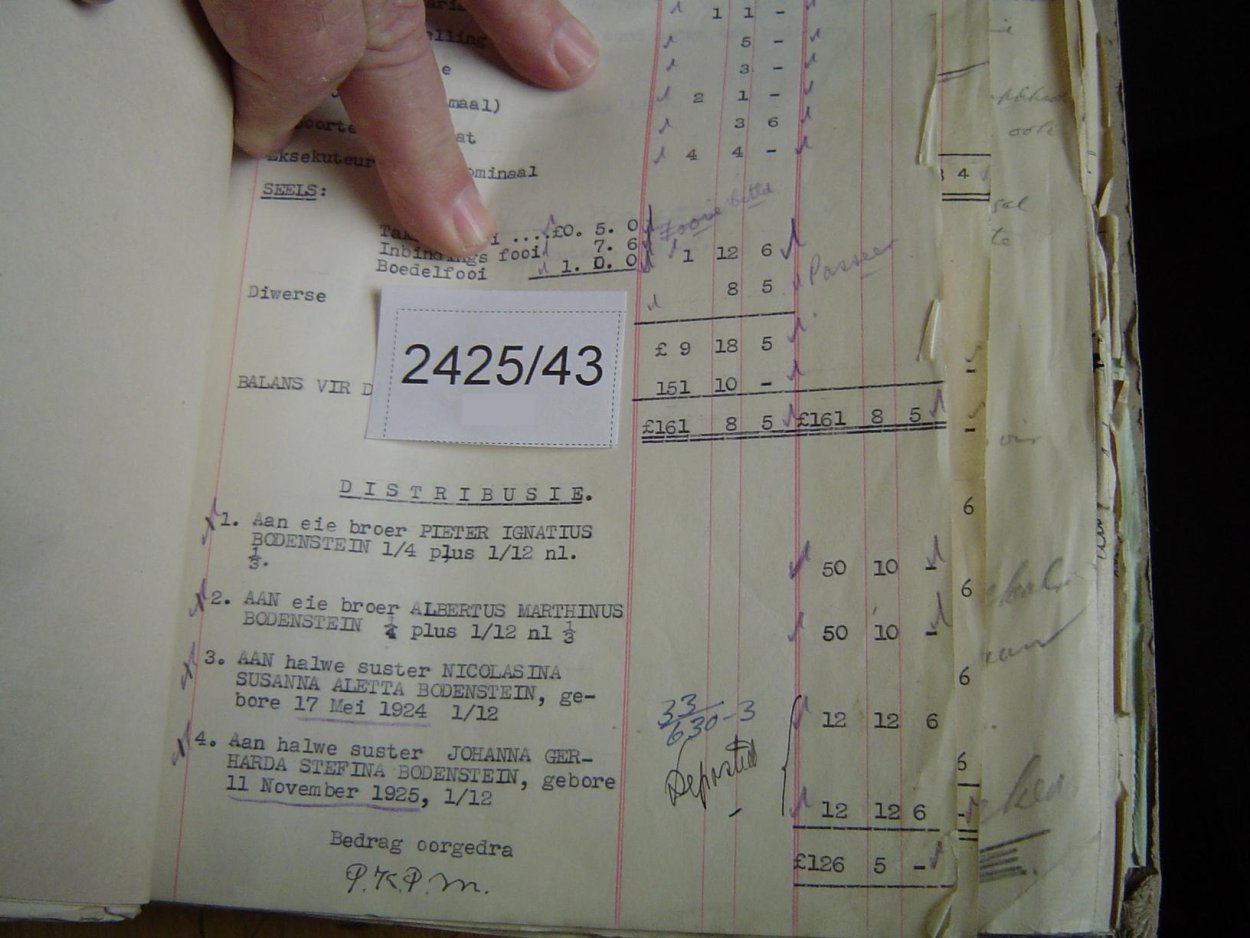 1 1 -
elling 5 -
e 3 -
maal) 2 1 -
at 3 6
Eksekuteur ominaal 4 4 -
SEELS:
Fooie betd
....£0. 5. 0
Inbindings fooi 7. 6 1 12 6
Boedelfooi 1. 0. 0
Passeer
Diwerse 8 5
£ 9 18 5
2425/43
BALANS VIR D 151 10 -
£161 8 5 £161 8 5
DISTRIBUSIE.
1. Aan eie broer PIETER IGNATIUS
BODENSTEIN 1/4 plus 1/12 nl.
1/3. 50 10 -
2. AAN eie broer ALBERTUS MARTHINUS
BODENSTEIN ¼ plus 1/12 nl ⅓ 50 10 -
3. AAN halwe suster NICOLASINA
SUSANNA ALETTA BODENSTEIN, ge-
bore 17 Mei 1924 1/12 12 12 6
33/630-3
4. Aan halwe suster JOHANNA GER-
HARDA STEFINA BODENSTEIN, gebore
11 November 1925, 1/12 12 12 6
Deposited
Bedrag oorgedra £126 5 -
P.K.P.M.
4
6
6
6
6